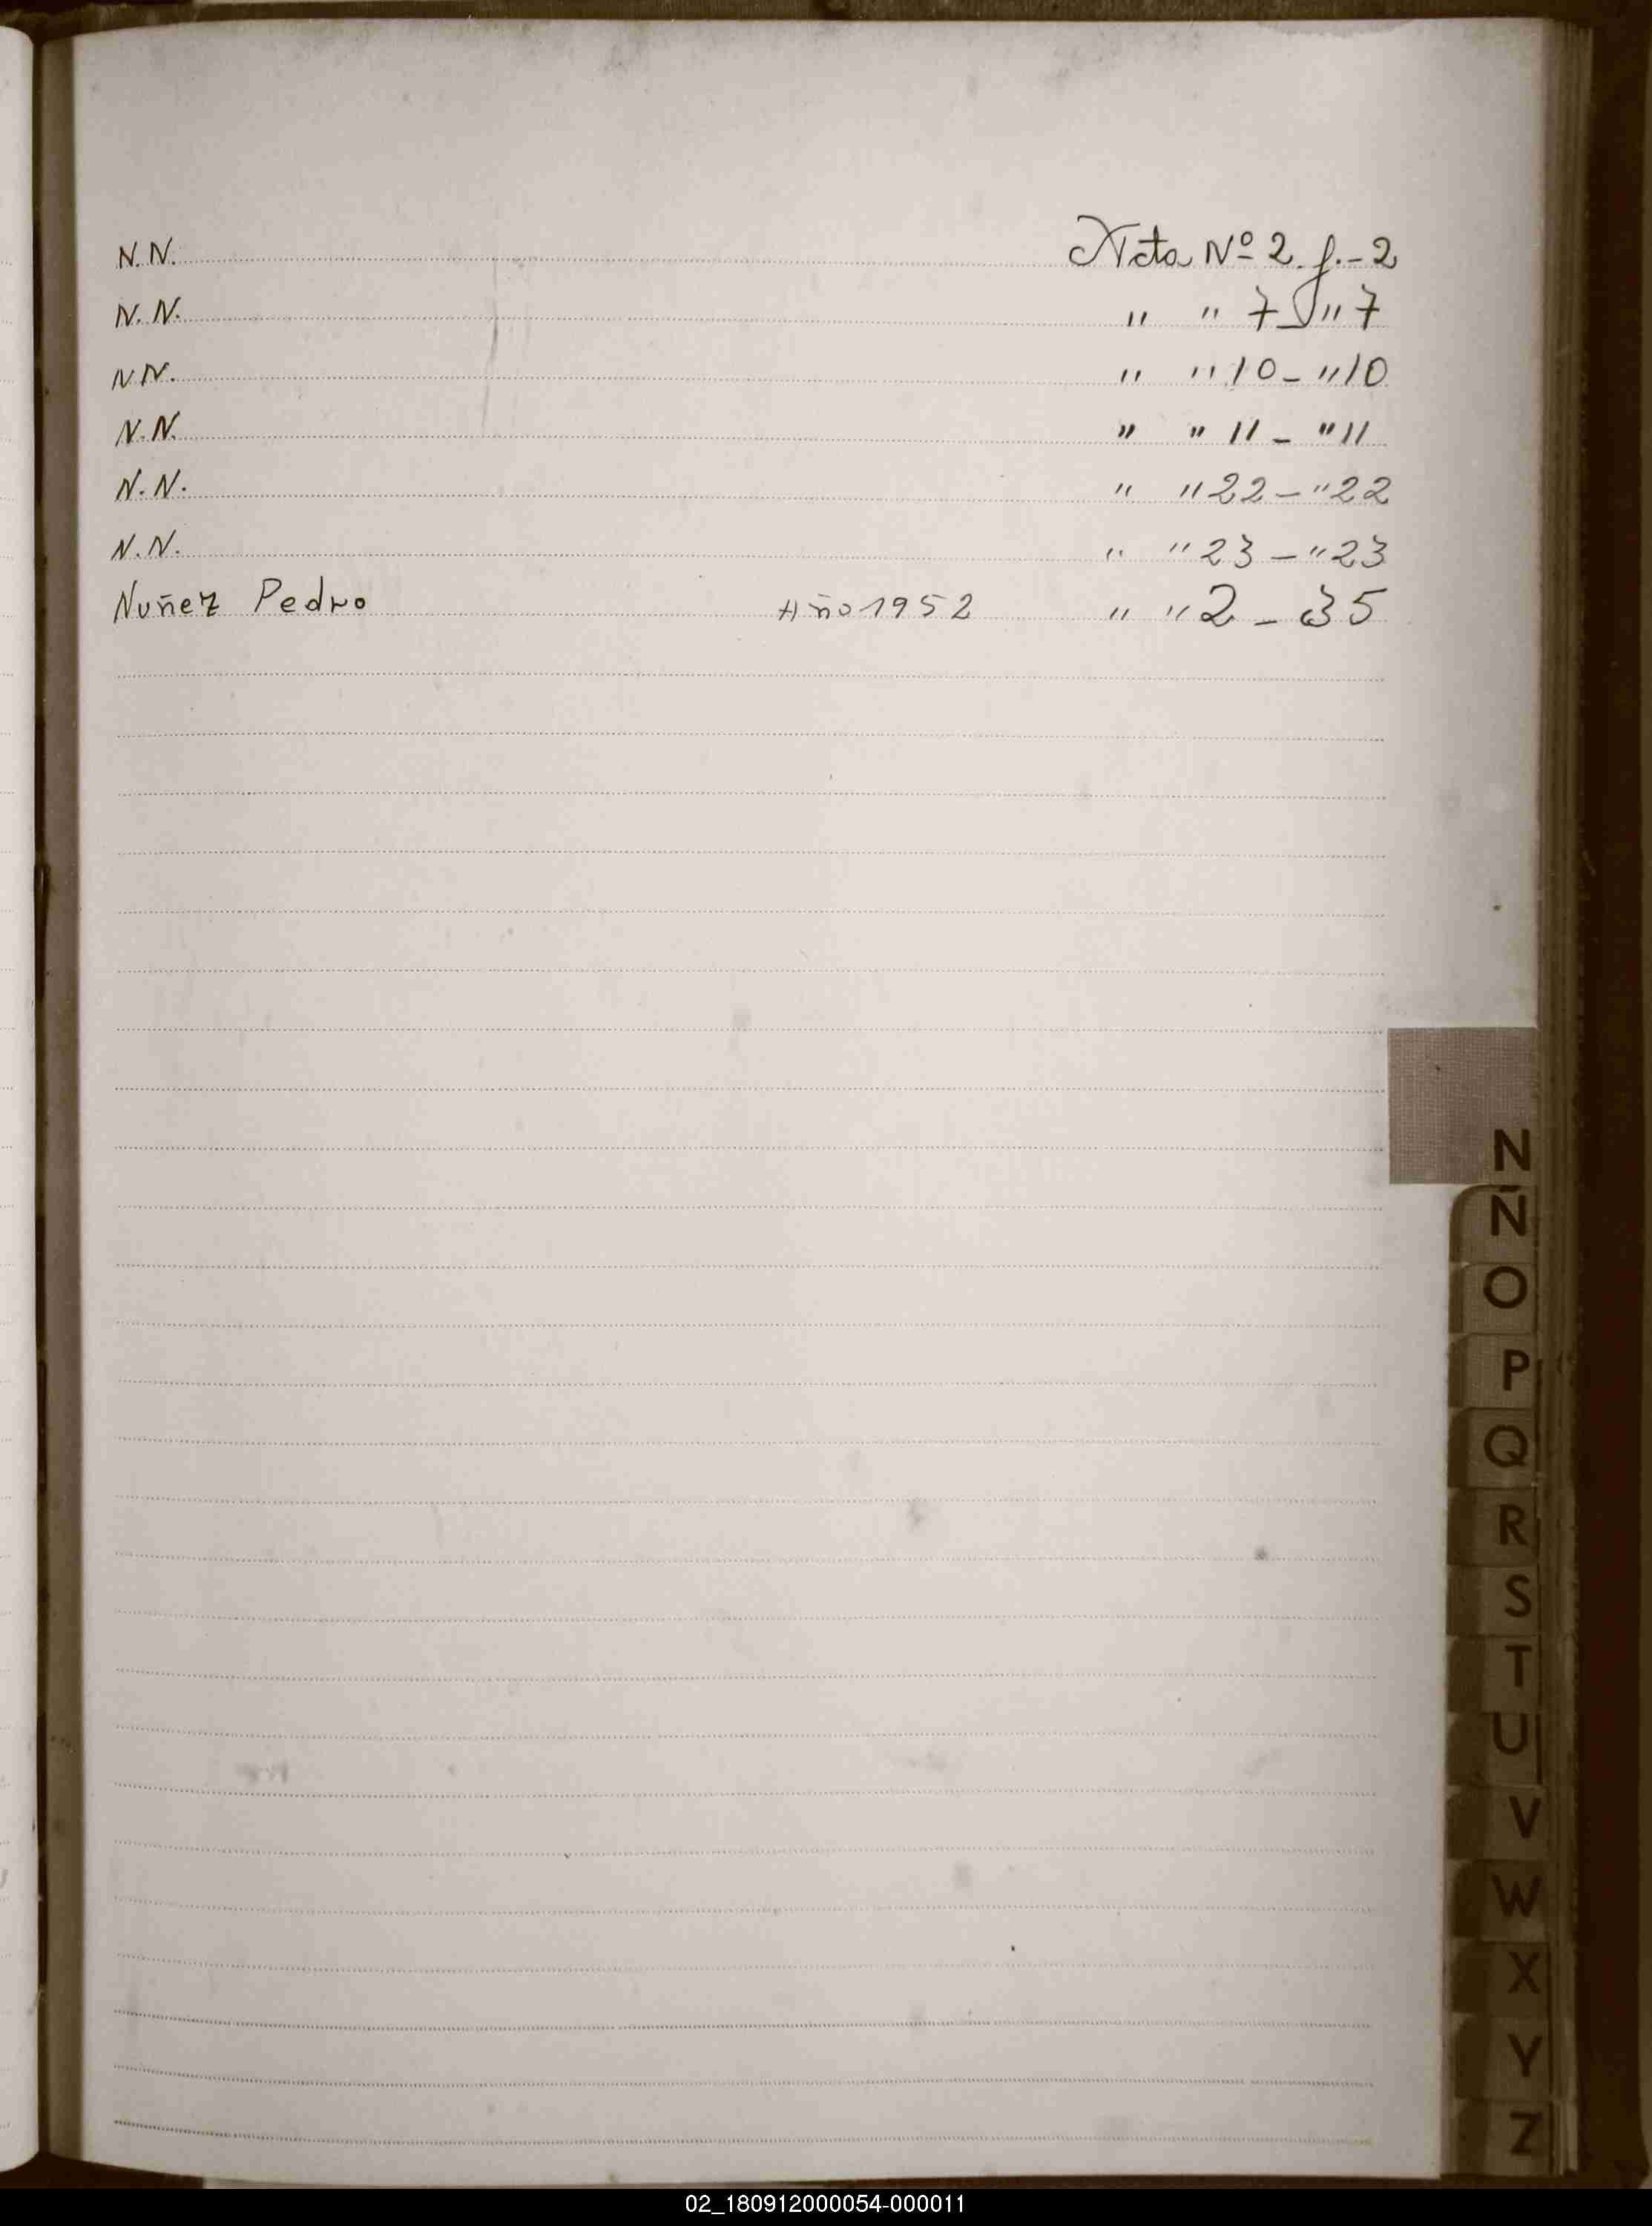 N.N. Acta Nº 2. f.-2
N.N. " " 7 " 7
NN. " " 10 - " 10
N.N. " " 11 - " 11
N.N. " " 22 - " 22
N.N. " " 23 - " 23
Nuñez Pedro Año 1952 " " 2 - 35
N
Ñ
O
P
Q
R
S
T
U
V
W
X
Y
Z
02_180912000054-000011